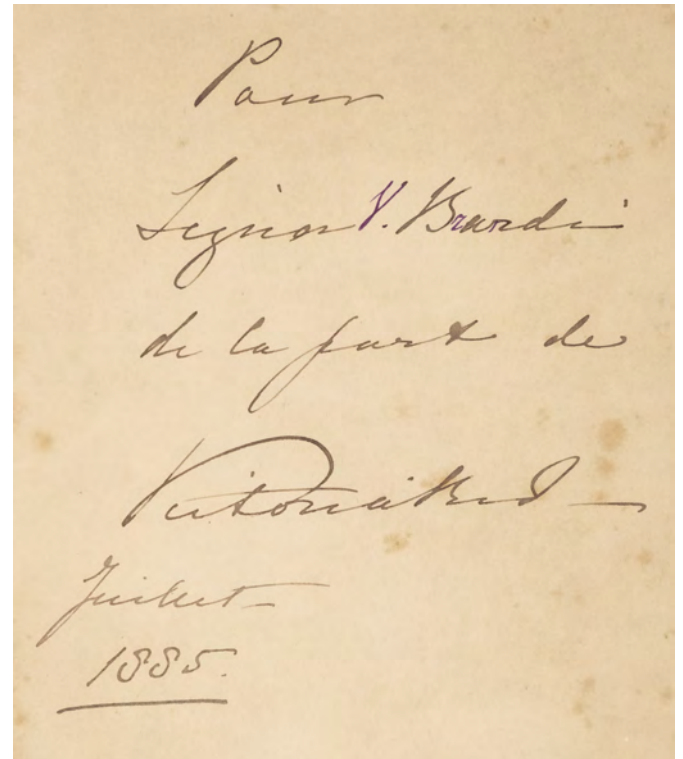 Pour
Signor V. Brardi
de la part de
Victoria R & I
Juillet
1885.